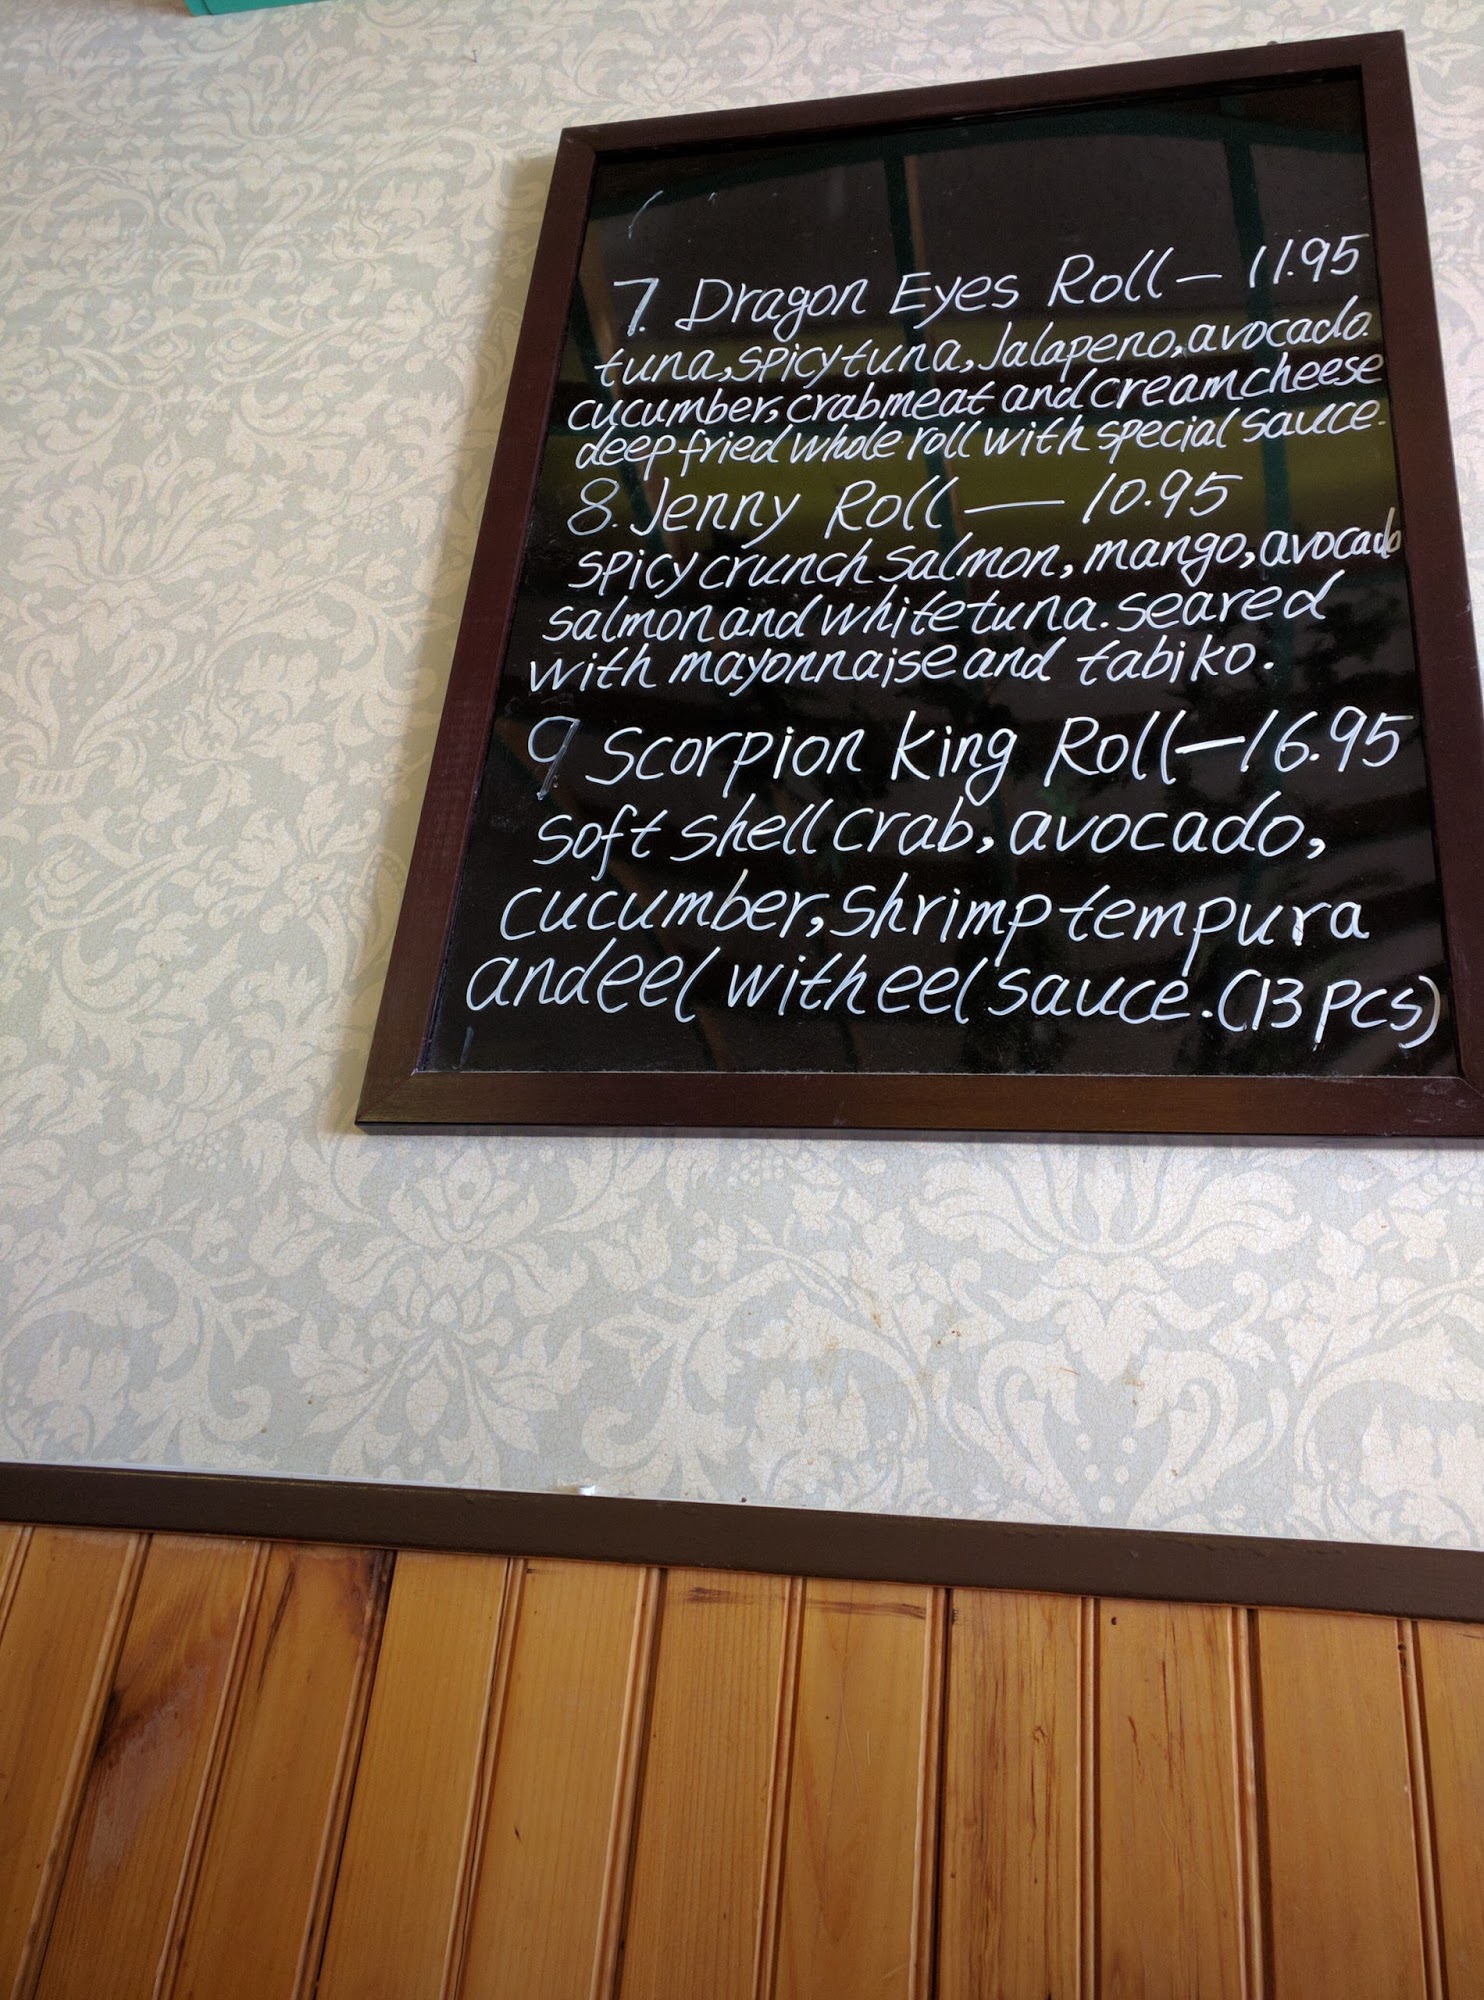 7. Dragon Eyes Roll — 11.95
tuna, spicy tuna, Jalapeno, avocado.
cucumber, crabmeat and cream cheese
deep fried whole roll with special sauce.
8. Jenny Roll — 10.95
spicy crunch salmon, mango, avocado
salmon and white tuna. seared
with mayonnaise and tabiko.
9 Scorpion King Roll — 16.95
soft shell crab, avocado,
cucumber, shrimp tempura
and eel with eel sauce. (13 pcs)